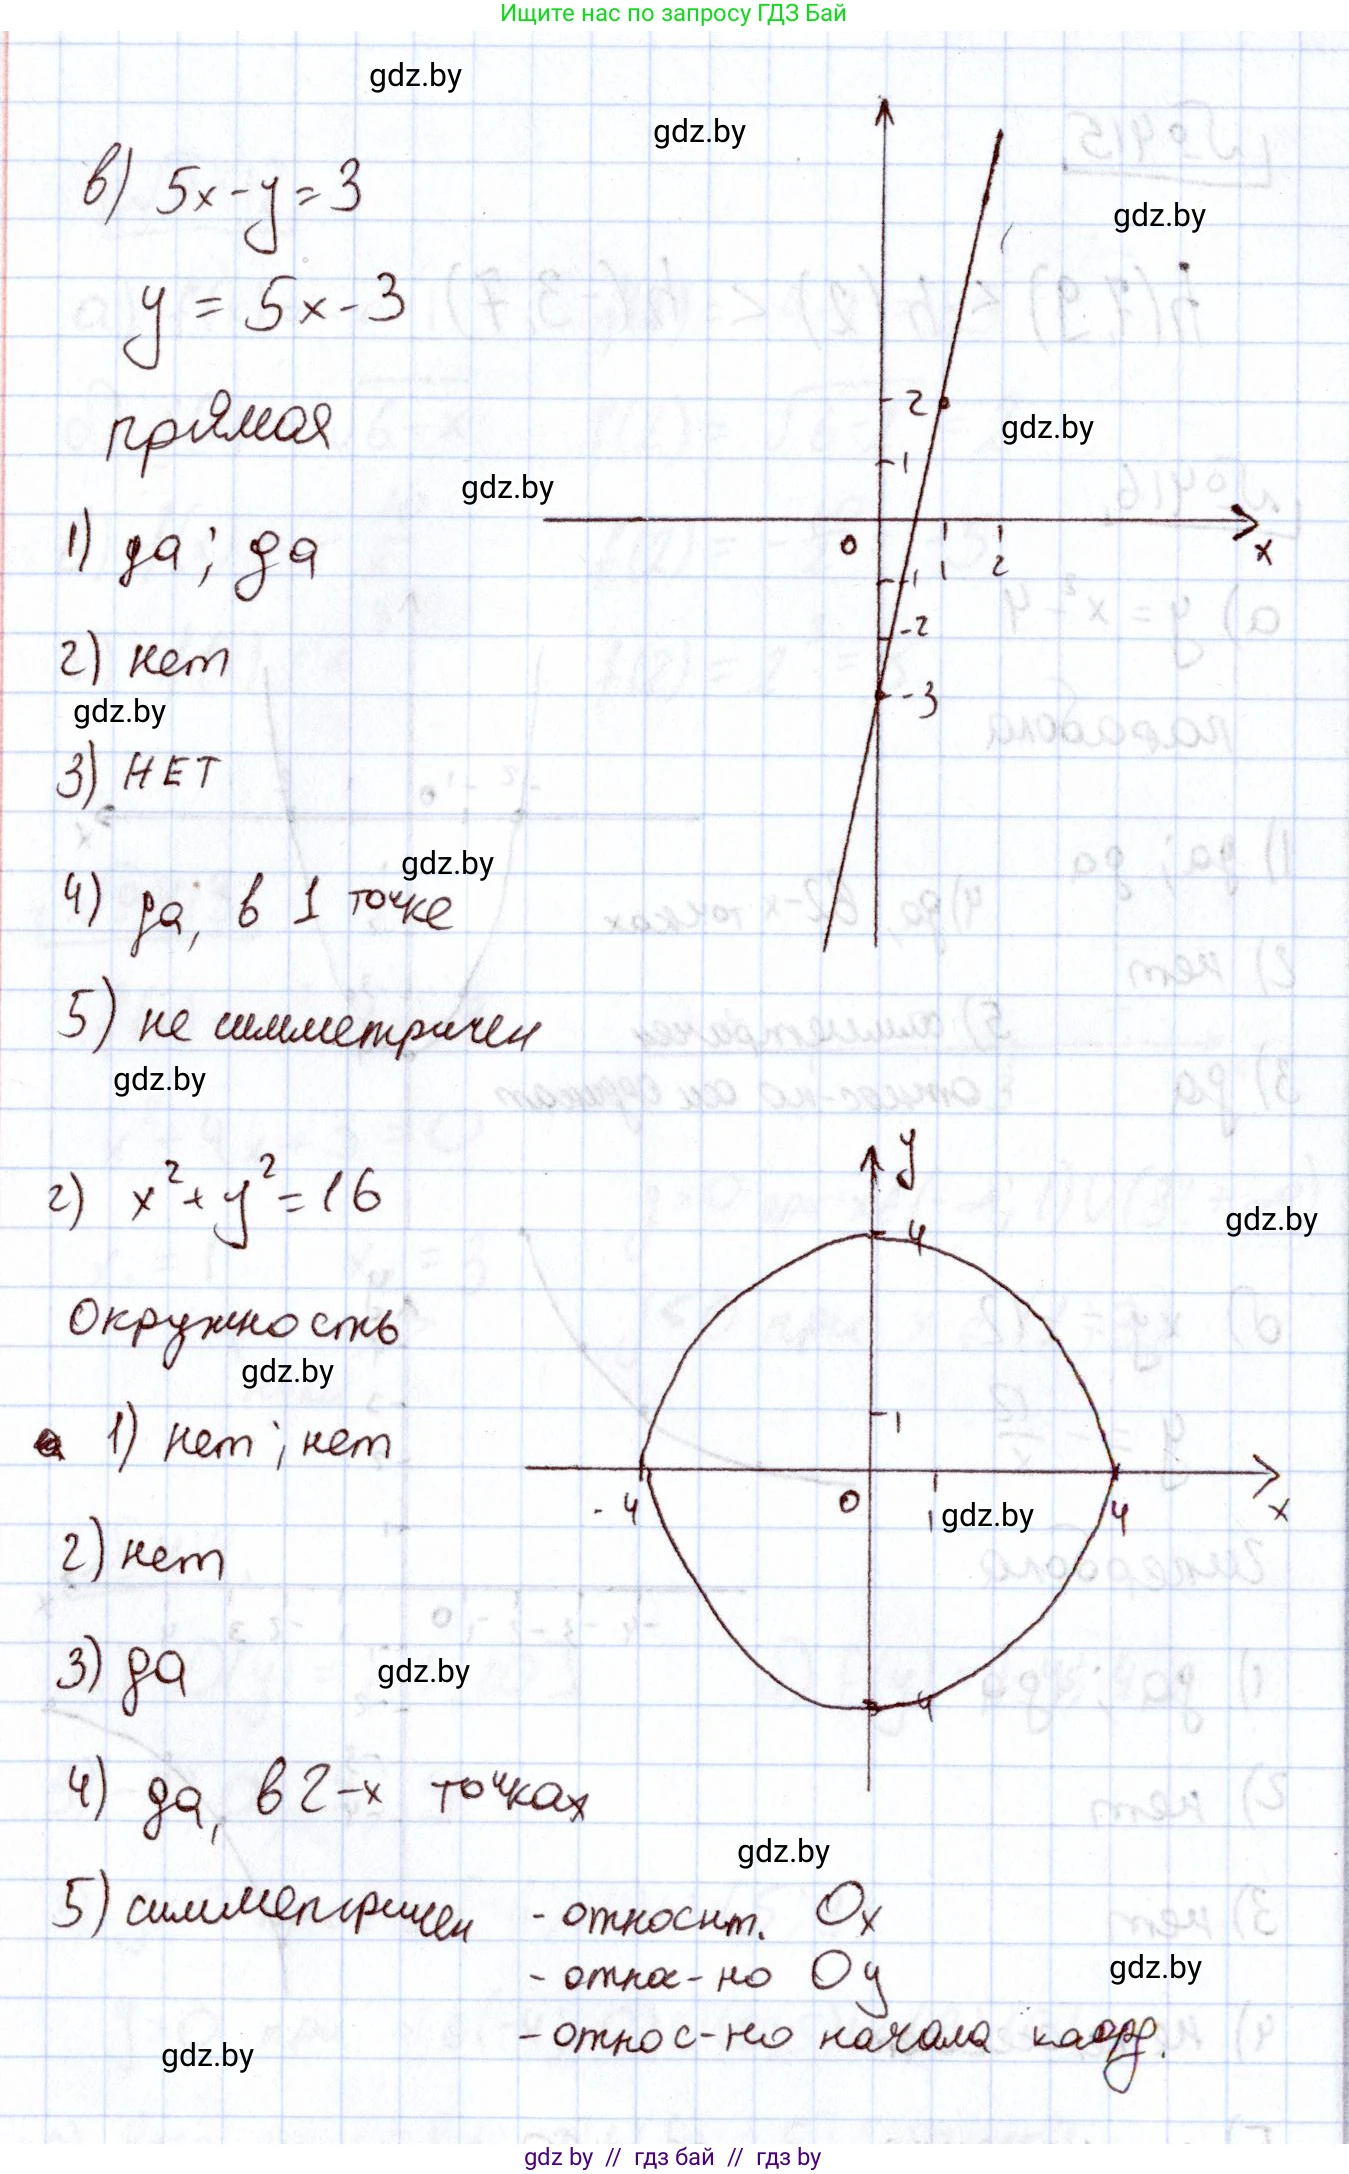 Ищите нас по запросу ГДЗ Бай
gdz.by
gdz.by
в) 5x-y=3
gdz.by
y = 5x-3
прямая
2
gdz.by
1
gdz.by
0
1
2
x
1) да; да
-1
-2
2) нет
-3
gdz.by
3) НЕТ
gdz.by
4) да, в 1 точке
5) не симметричен
gdz.by
y
г) x²+y²=16
gdz.by
4
Окружность
gdz.by
1
1) нет; нет
-4
0
1
gdz.by
4
x
2) нет
3) да
gdz.by
4
4) да, в 2-х точках
gdz.by
5) симметричен - относит. Ox
- относ-но Oy
gdz.by
- относ-но начала коорд.
gdz.by
gdz by // гдз бай // гдз by